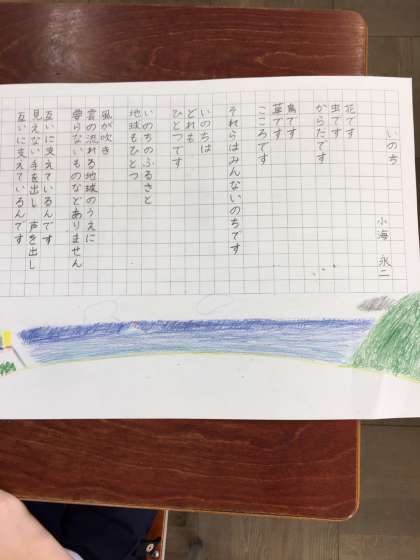 いのち
小海 永二
花です
虫です
からだです
鳥です
草です
こころです
それらはみんないのちです
いのちは
どれも
ひとつです
いのちのふるさと
地球もひとつ
風が吹き
雲の流れる地球のうえに
要らないものなどありません
互いに支えているんです
見えない手を出し 声を出し
互いに支えているんです